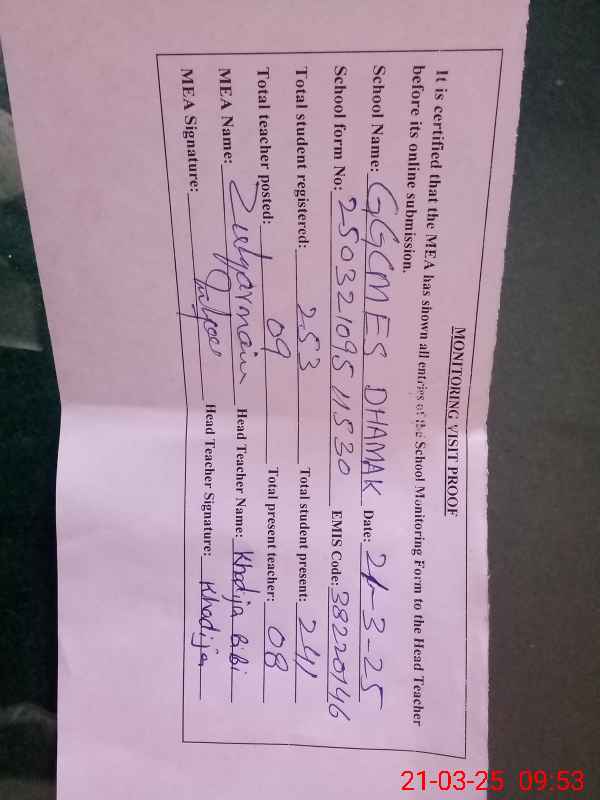 MONITORING VISIT PROOF
It is certified that the MEA has shown all entries of the School Monitoring Form to the Head Teacher
before its online submission.
School Name: GGCMES DHAMAK Date: 21-3-25
School form No: 25032109511530 EMIS Code: 38220146
Total student registered: 253 Total student present: 241
Total teacher posted: 09 Total present teacher: 08
MEA Name: Zulqarnain Head Teacher Name: Khadija Bibi
MEA Signature: Head Teacher Signature: Khadija
21-03-25 09:53